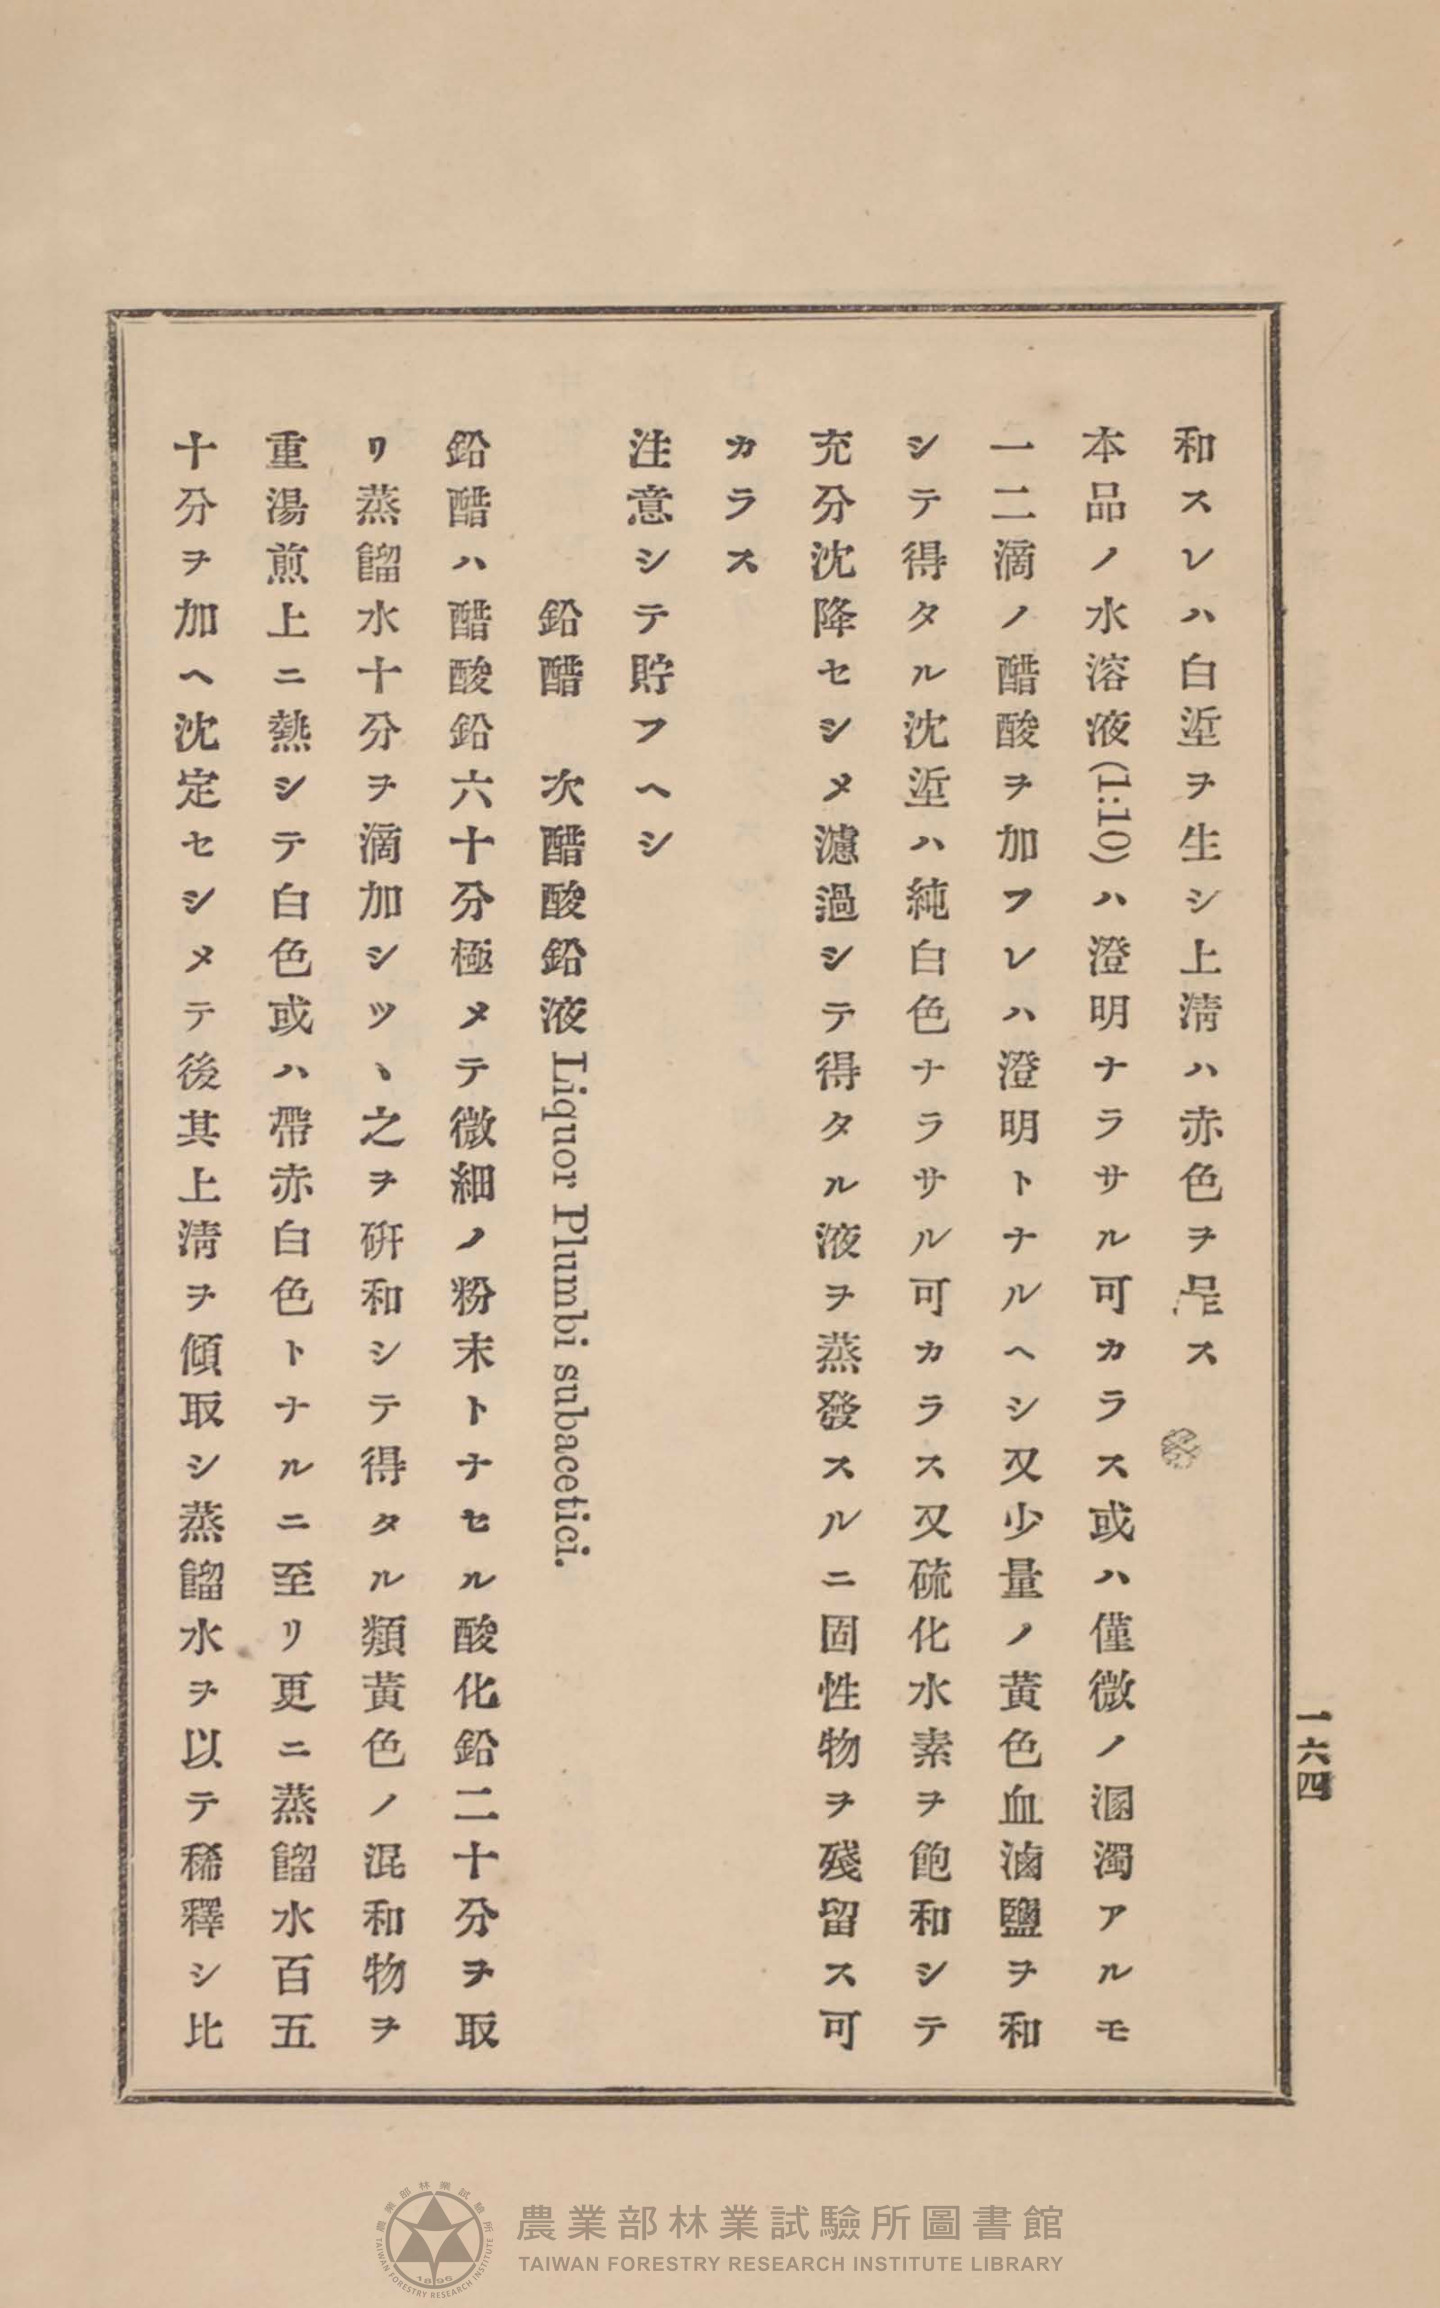 一六四
和スレハ白坙ヲ生シ上淸ハ赤色ヲ呈ス
本品ノ水溶液(1:10)ハ澄明ナラサル可カラス或ハ僅微ノ溷濁アルモ
一二滴ノ醋酸ヲ加フレハ澄明トナルヘシ又少量ノ黃色血滷鹽ヲ和
シテ得タル沈坙ハ純白色ナラサル可カラス又硫化水素ヲ飽和シテ
充分沈降セシメ濾過シテ得タル液ヲ蒸發スルニ固性物ヲ殘留ス可
カラス
注意シテ貯フヘシ
鉛醋 次醋酸鉛液 Liquor Plumbi subacetici.
鉛醋ハ醋酸鉛六十分極メテ微細ノ粉末トナセル酸化鉛二十分ヲ取
リ蒸餾水十分ヲ滴加シツヽ之ヲ硏和シテ得タル類黃色ノ混和物ヲ
重湯煎上ニ熱シテ白色或ハ帶赤白色トナルニ至リ更ニ蒸餾水百五
十分ヲ加ヘ沈定セシメテ後其上淸ヲ傾取シ蒸餾水ヲ以テ稀釋シ比
農業部林業試驗所圖書館
TAIWAN FORESTRY RESEARCH INSTITUTE LIBRARY
農業部林業試驗所
TAIWAN FORESTRY RESEARCH INSTITUTE
1896